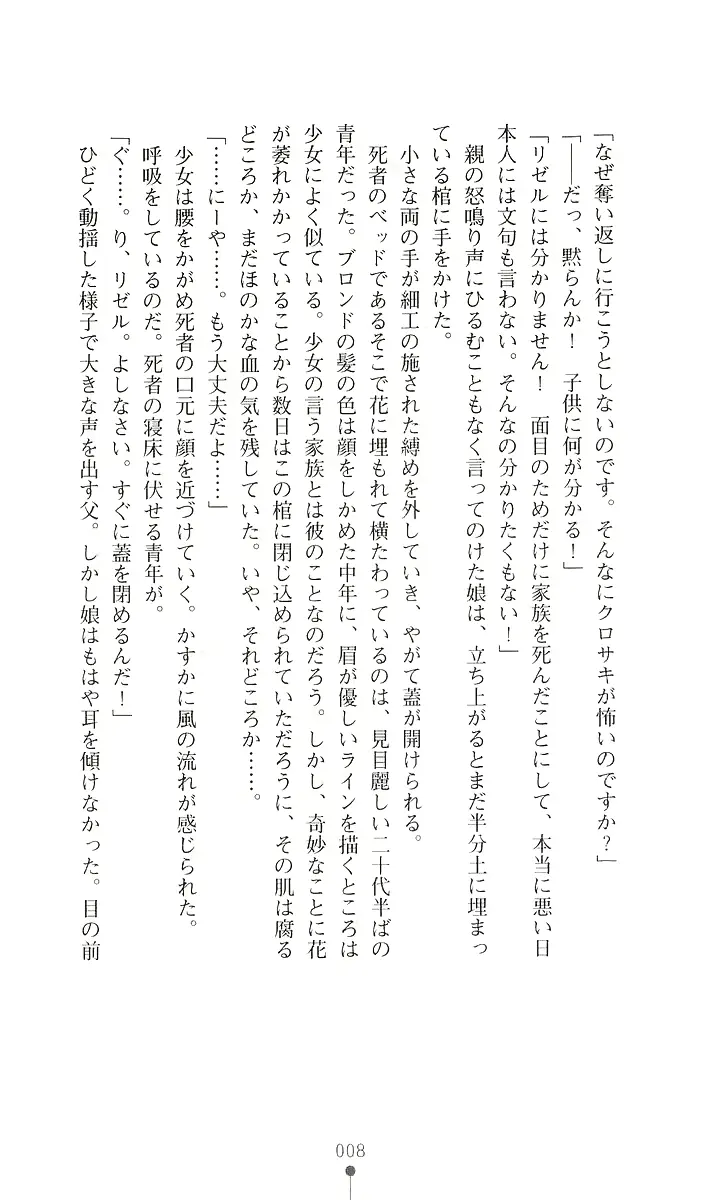 「なぜ奪い返しに行こうとしないのです。そんなにクロサキが怖いのですか？」
「――だっ、黙らんか！　子供に何が分かる！」
「リゼルには分かりません！　面目のためだけに家族を死んだことにして、本当に悪い日
本人には文句も言わない。そんなの分かりたくもない！」
　親の怒鳴り声にひるむこともなく言ってのけた娘は、立ち上がるとまだ半分土に埋まっ
ている棺に手をかけた。
　小さな両の手が細工の施された縛めを外していき、やがて蓋が開けられる。
　死者のベッドであるそこで花に埋もれて横たわっているのは、見目麗しい二十代半ばの
青年だった。ブロンドの髪の色は顔をしかめた中年に、眉が優しいラインを描くところは
少女によく似ている。少女の言う家族とは彼のことなのだろう。しかし、奇妙なことに花
が萎れかかっていることから数日はこの棺に閉じ込められていただろうに、その肌は腐る
どころか、まだほのかな血の気を残していた。いや、それどころか……。
「……にーや……。もう大丈夫だよ……」
　少女は腰をかがめ死者の口元に顔を近づけていく。かすかに風の流れが感じられた。
　呼吸をしているのだ。死者の寝床に伏せる青年が。
「ぐ……。り、リゼル。よしなさい。すぐに蓋を閉めるんだ！」
　ひどく動揺した様子で大きな声を出す父。しかし娘はもはや耳を傾けなかった。目の前
008